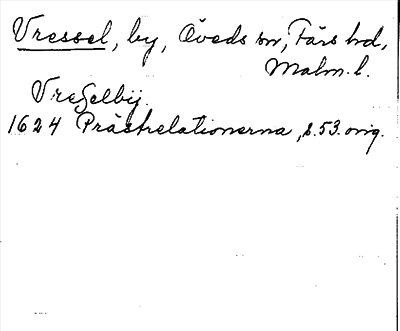 Vressel, by, Öveds sn, Färs hd,
Malm. l.
Vreselbij.
1624 Prästrelationerna, s. 53. orig.